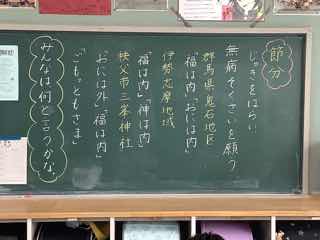 節分
じゃきをはらい
無病そくさいを願う
群馬県鬼石地区
「福は内」「おには内」
伊勢志摩地域
「福は内」「神は内」
秩父市三峯神社
「おには外」「福は内」
「ごもっともさま」
みんなは何と言うかな。